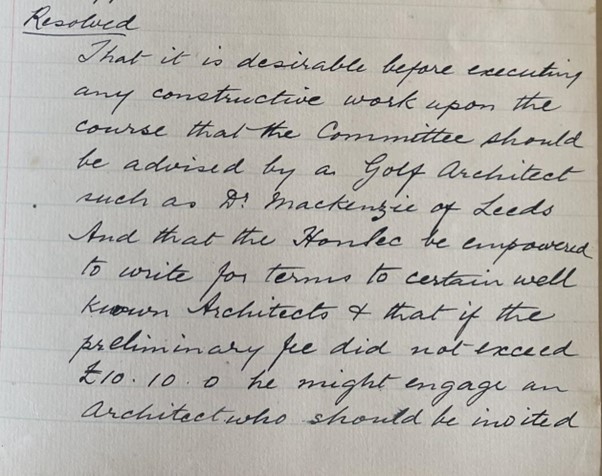 Resolved
That it is desirable before executing
any constructive work upon the
course that the Committee should
be advised by a Golf Architect
such as Dr Mackenzie of Leeds
And that the HonSec be empowered
to write for terms to certain well
known Architects & that if the
preliminary fee did not exceed
£10.10.0 he might engage an
Architect who should be invited